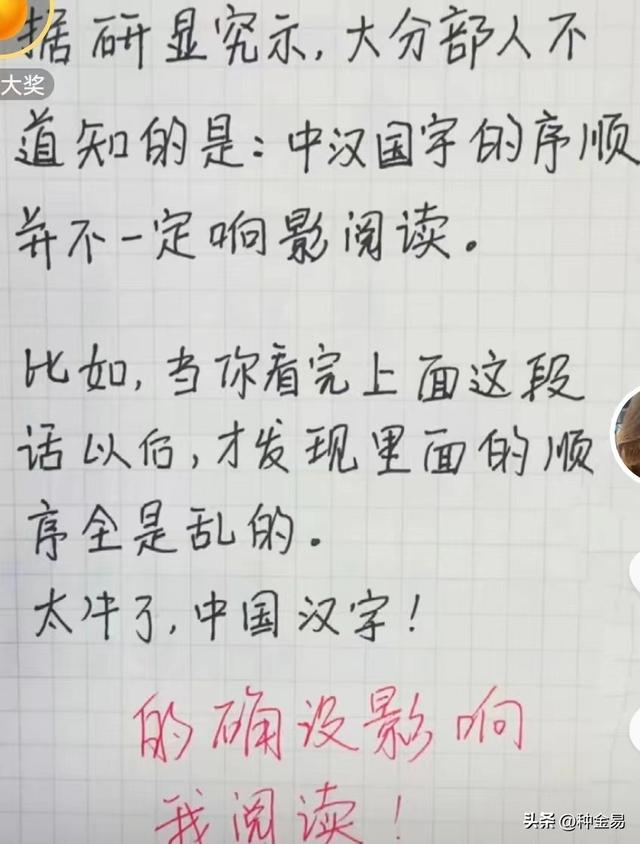 大奖
据研显究示，大分部人不
道知的是：中汉国字的序顺
并不一定响影阅读。
比如，当你看完上面这段
话以后，才发现里面的顺
序全是乱的。
太牛了，中国汉字！
的确没影响
我阅读！
头条 @种金易